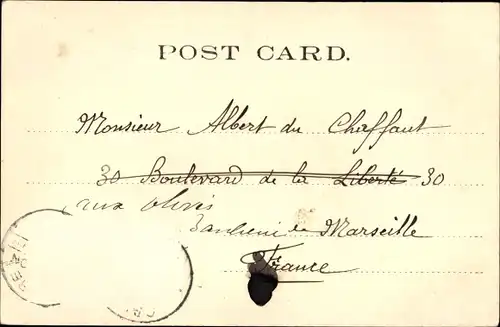 POST CARD.
Monsieur Albert du Chaffaut
30 Boulevard de la Liberté 30
aux Olives
Banlieue de Marseille
France